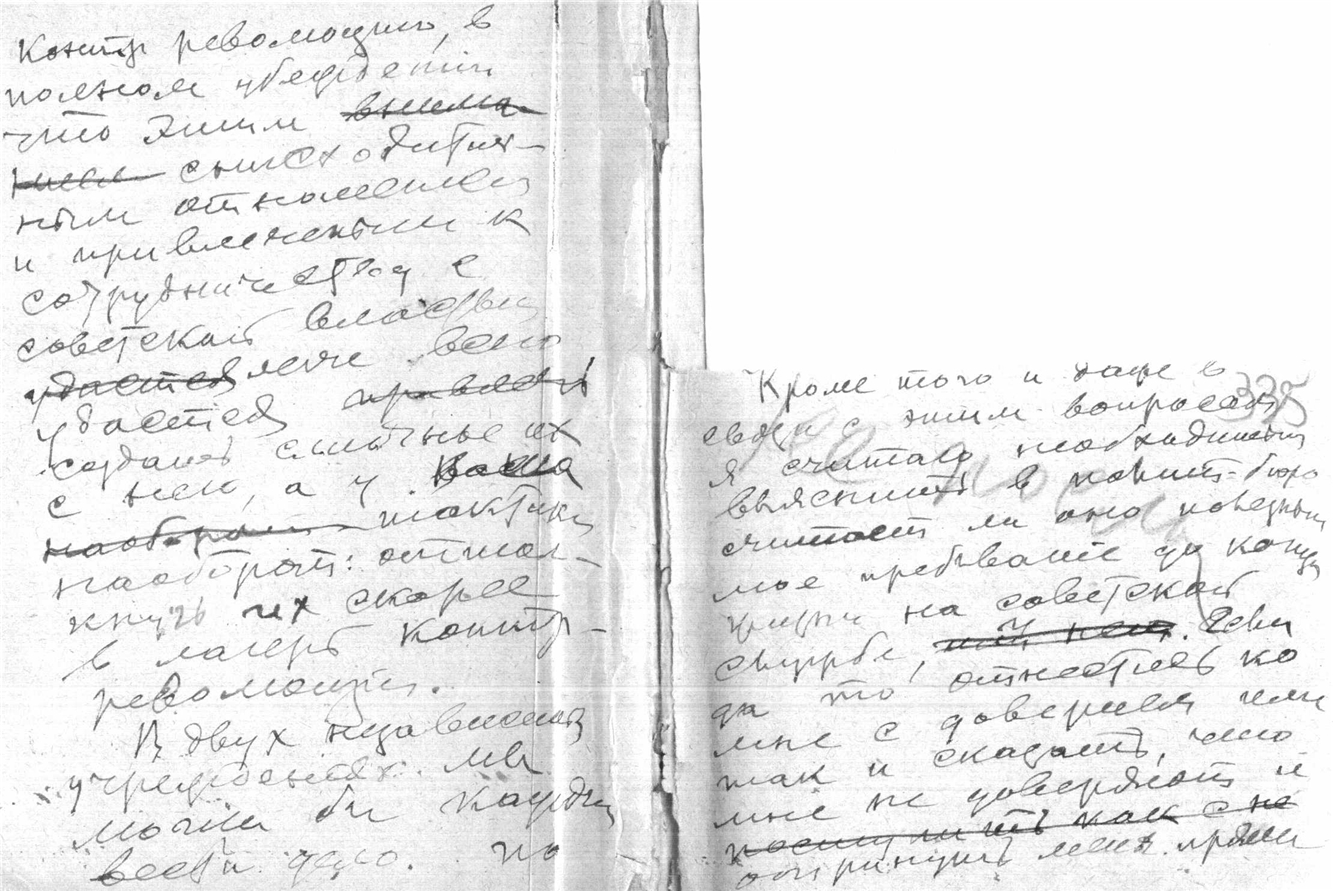 Контр революцию, в
полном убеждении
что этим внима-
нием снисходитель-
ным отношением
и привлечением к
сотрудничеству с
советской властью
удается легче всего
удается привлечь
создать смычку их
с нею, а у
наоборот тактика
наоборот: оттол-
кнуть их скорее
в лагерь контр-
революции.
В двух независимых
учреждениях мы
могли бы каждый
вести дело. но
Кроме того и даже в
335
связи с этим вопросом
я считаю необходимым
выяснить в полит-бюро
считает ли оно полезным
мое пребывание до конца
жизни на советской
службе, или нет. Если
да то отнестись ко
мне с доверием или
так и сказать, что
мне не доверяют и
поступить как с не
отринуть меня прямо